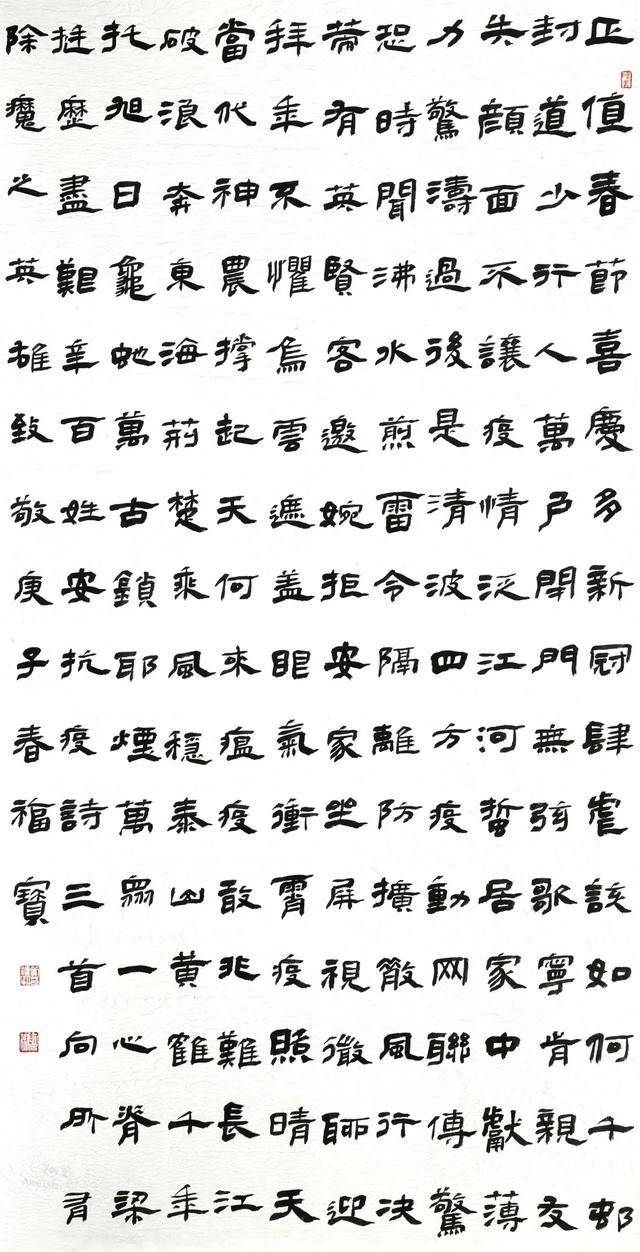 正值春節喜慶多新冠肆虐該如何千邨
封道少行人萬户閉門無弦歌寧肯親友
失顏面不讓疫情泛江河蜇居家中獻薄
力驚濤過後是清波四方疫動网聯傳驚
恐時聞沸水煎雷令隔離防擴散風行決
策有英賢客邀婉拒安家坐屏視微聊迎
拜年不懼烏雲遮盖眼氣衝霄疫照晴天
當代神農撐起天何來瘟疫敢兆難長江
破浪奔東海荊楚乘風穩泰山黃鶴千年
托旭日龜虵萬古鎮耶煙萬眾一心脊梁
挺歷盡艱辛百姓安抗疫詩三首向所有
除魔之英雄致敬庚子春福寶